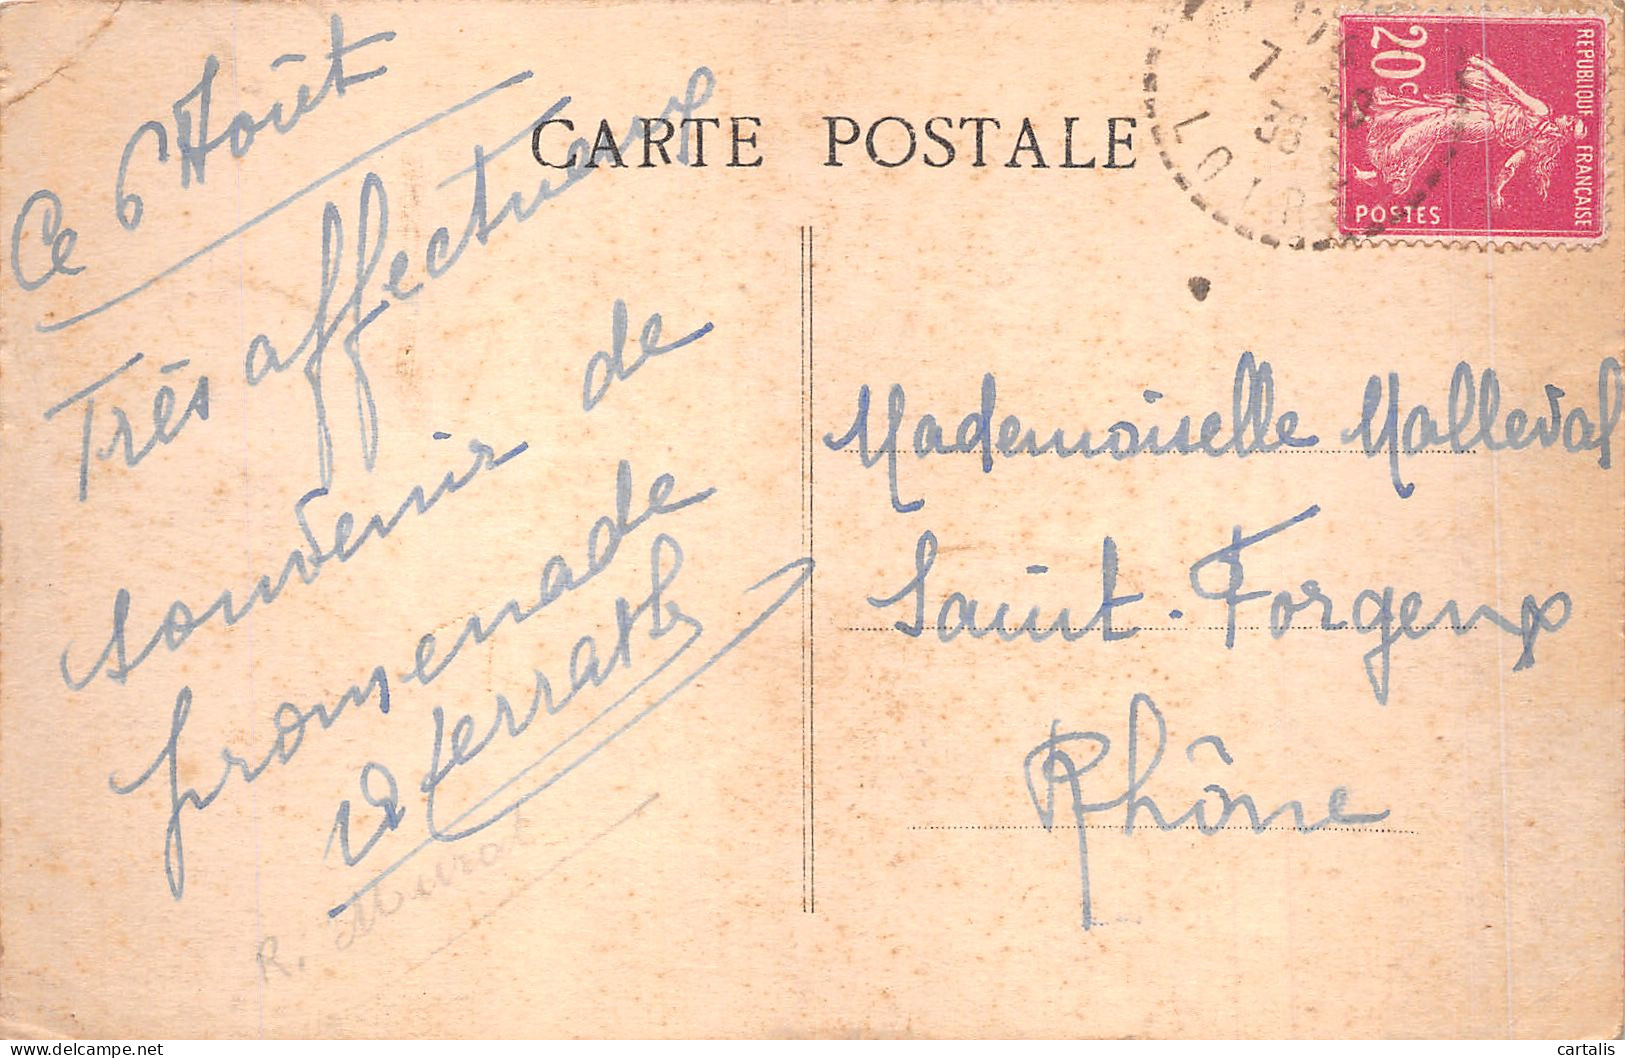 CARTE POSTALE
REPUBLIQUE FRANÇAISE
20c
POSTES
7
36
LOIR
Ce 6 Août
Très affectueux
souvenir de
promenade
à
R. Murat
Mademoiselle Malleval
Saint-Forgeux
Rhône
cartalis
delcampe.net